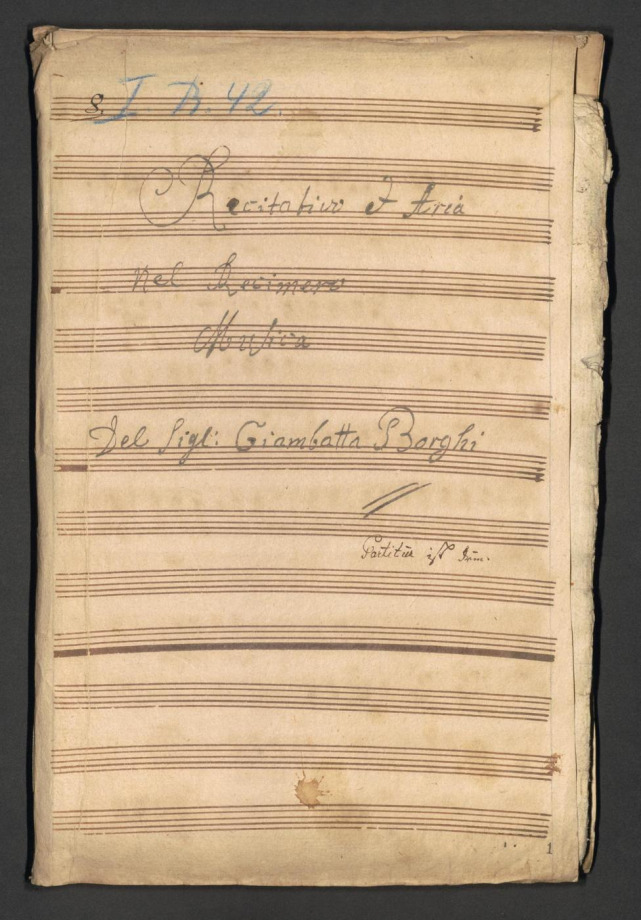 S. I R. 42.
Recitativo I Aria
Nel Recimero
Musica
Del Sigl: Giambatta Borghi
Partitur ist
1